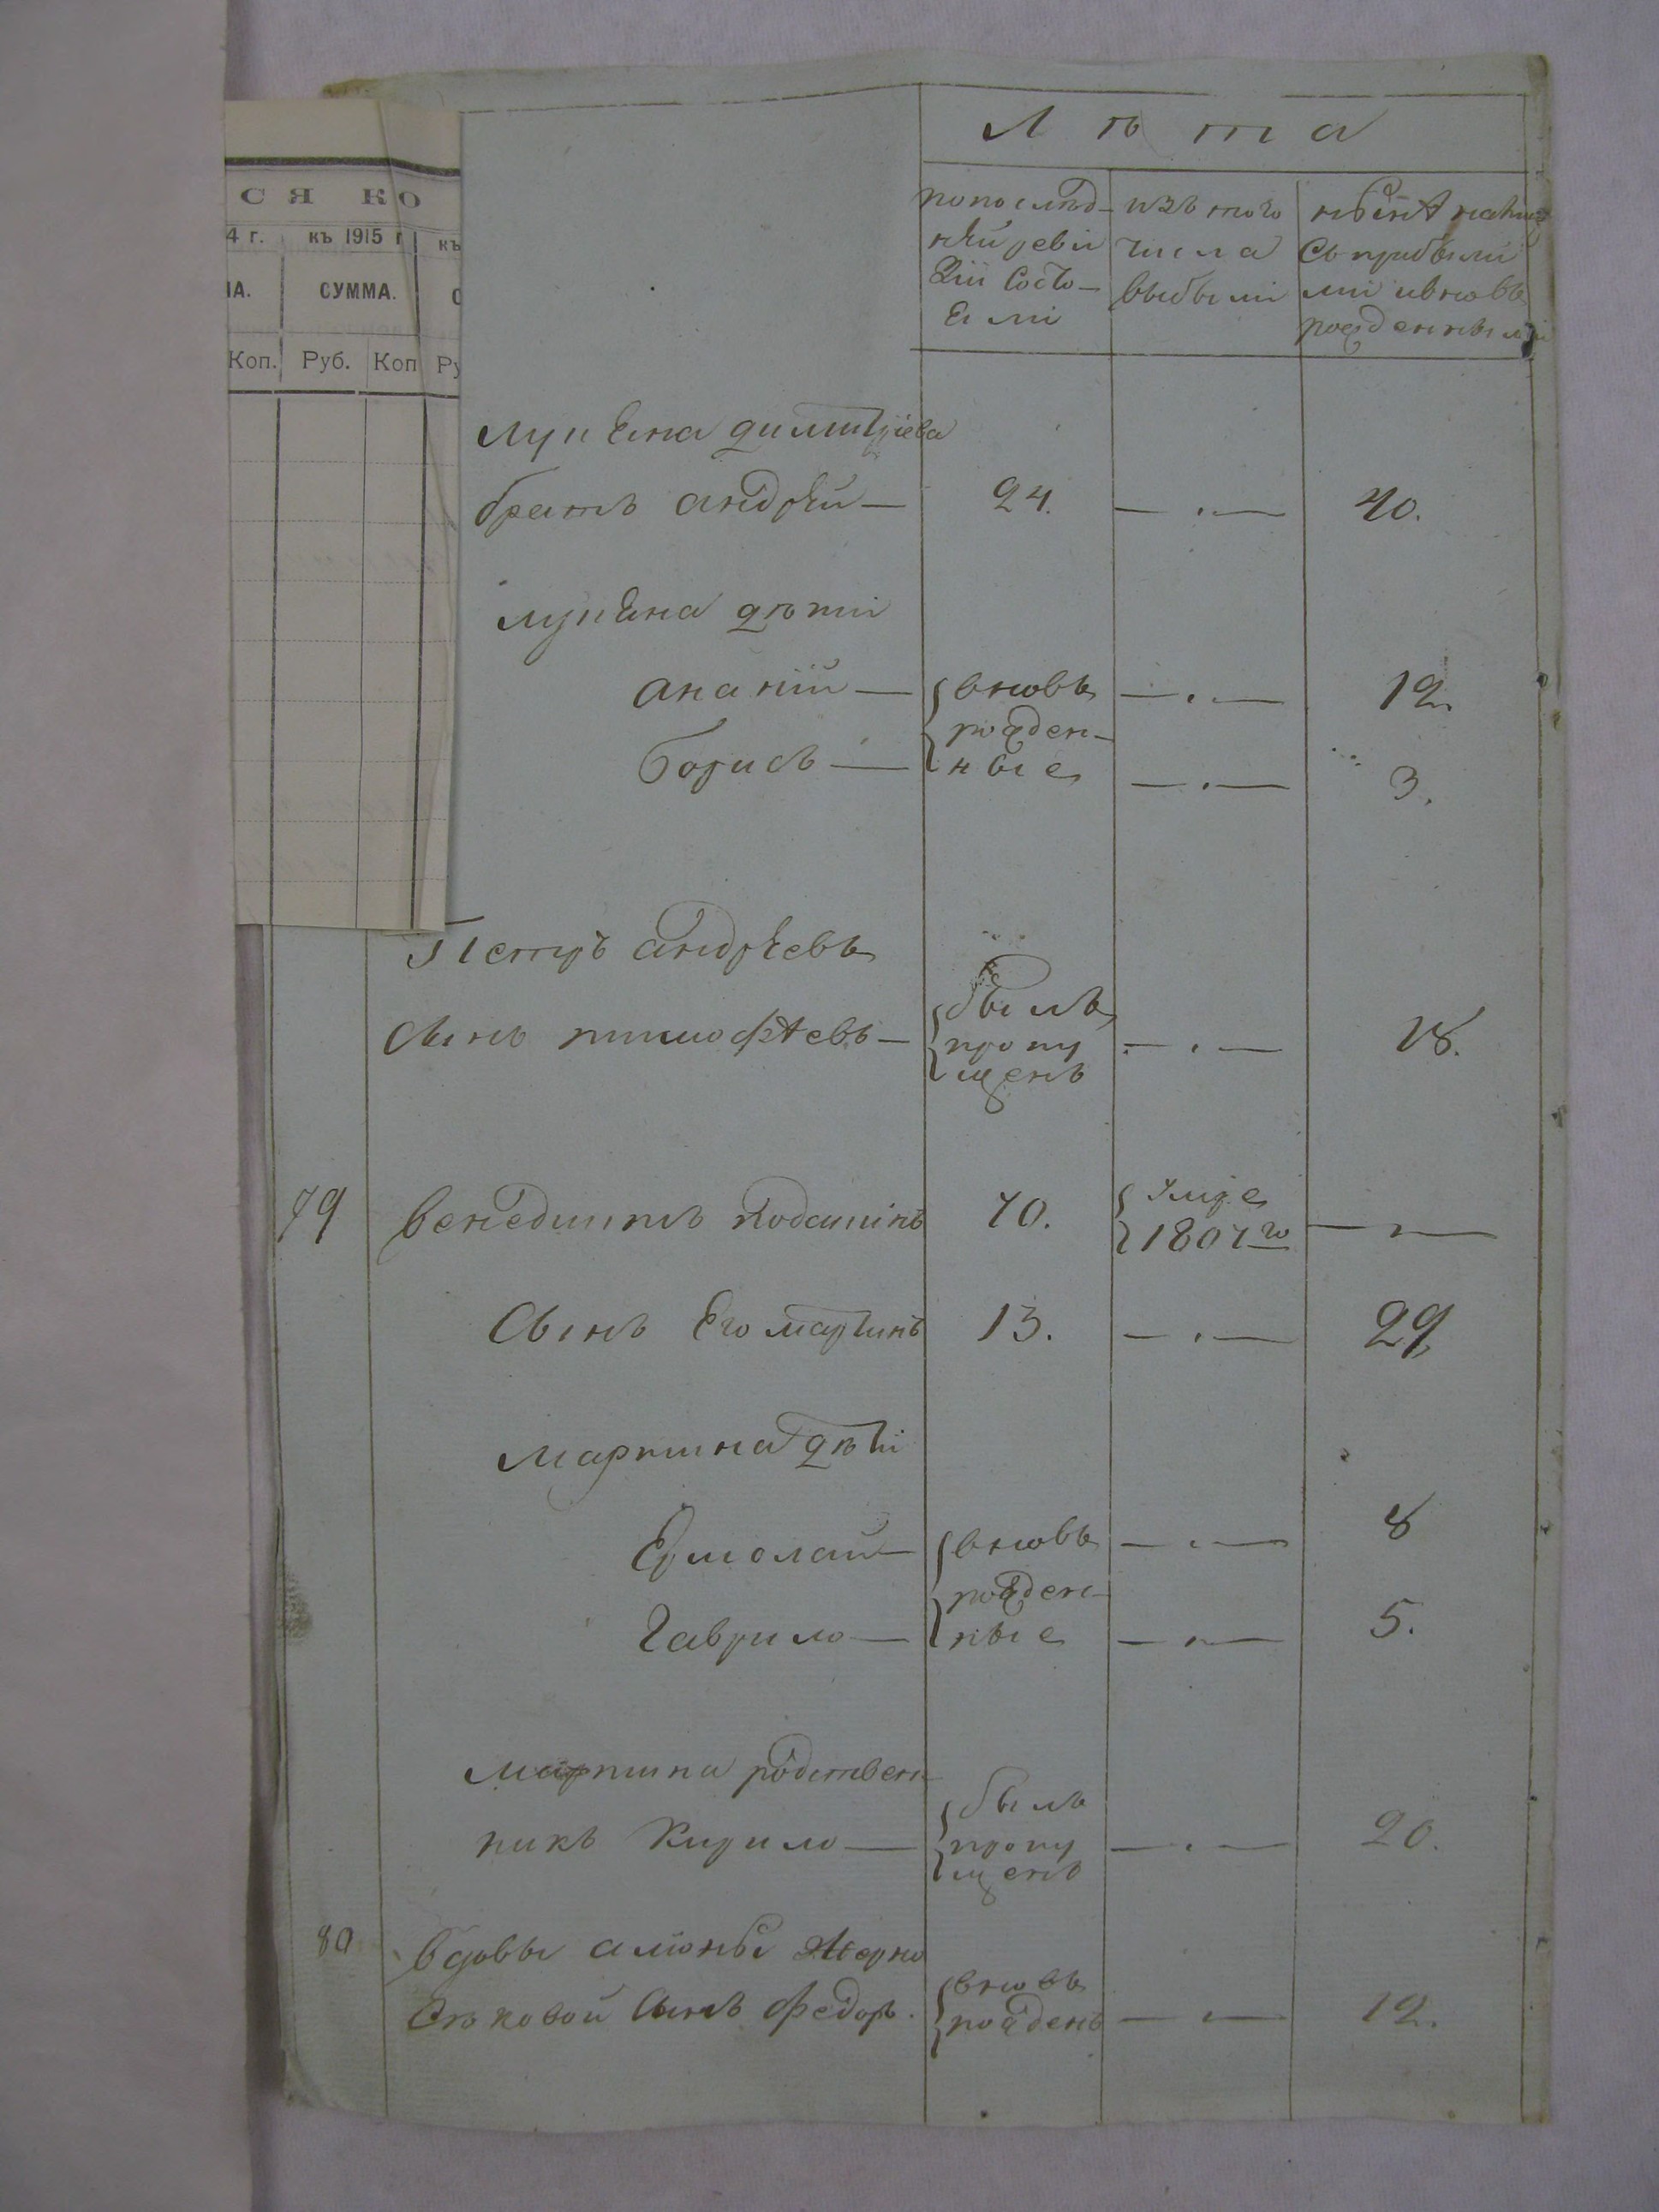 СЯ КО
4 г. къ 1915 г къ
IА. СУММА. С
Коп. Руб. Коп Ру
Лѣта
по послѣд-
нѣй реви
зіи состо-
ели
изъ того
числа
выбыли
нынѣ налицо
съ прибыли
ми и вновь
рожденными
Лупѣна димитріева
братъ андрѣй — 24. — 40.
лупѣна дѣти
ананій — вновь — 12.
рожден-
борисъ — ные — 3.
Петръ андрѣевъ
сынъ тимофѣевъ — былъ
пропу — 18.
щенъ
79 венедиктъ 70. умре
1807го —
Сынъ Его мартинъ 13. — 29
Мартина дѣти
Ермолай — вновь — 8
рожден-
Гаврило — ные — 5.
Мартина родствен
никъ Кирило — былъ
пропу — 20.
щенъ
80 вдовы алионы Жерно
сѣковой сынъ федоръ. вновь
рожденъ — 12.